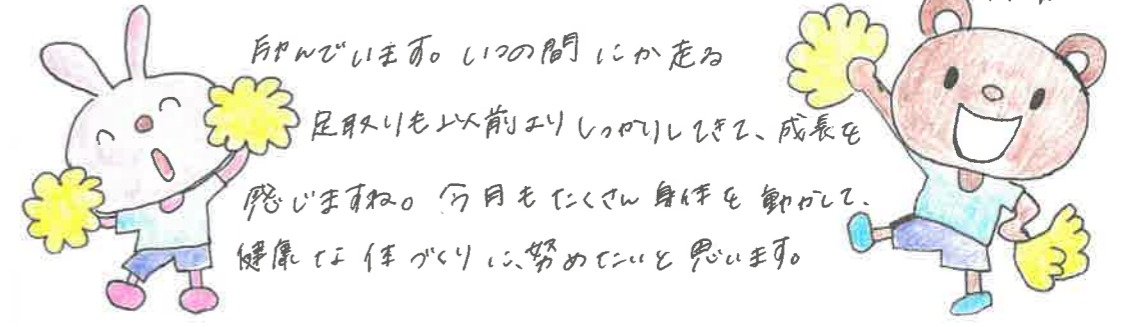 励んでいます。いつの間にか走る
足取りも以前よりしっかりしてきて、成長を
感じますね。今月もたくさん身体を動かして、
健康な体づくりに、努めたいと思います。